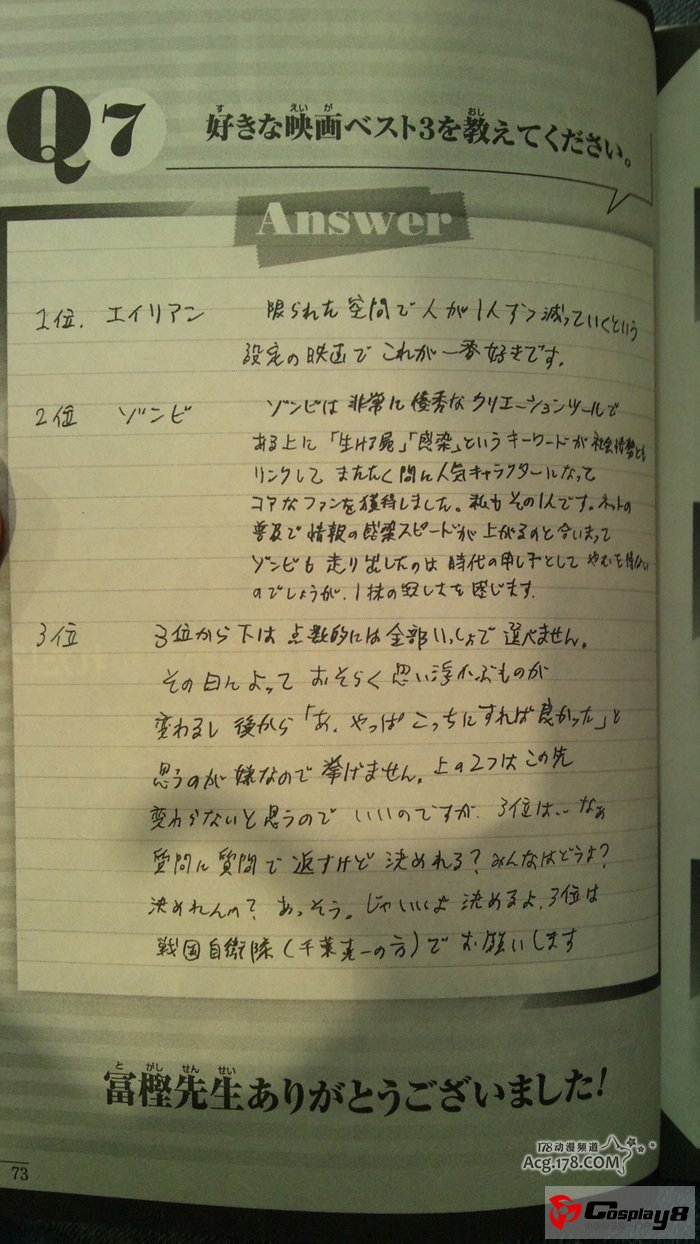 Q7
好きな映画ベスト3を教えてください。
Answer
1位. エイリアン 限られた空間で人が1人ずつ減っていくという
設定の映画でこれが一番好きです。
2位 ゾンビ ゾンビは非常に優秀なクリエーションツールで
ある上に「生ける屍」「感染」というキーワードが社会情勢とも
リンクしてまたたく間に人気キャラクターになって
コアなファンを獲得しました。私もその1人です。ネットの
普及で情報の感染スピードが上がるのと合いまって
ゾンビも走り出したのは時代の申し子としてやむを得ない
のでしょうが、1抹の寂しさを感じます.
3位 3位から下は点数的には全部いっしょで選べません。
その日によっておそらく思い浮かぶものが
変わるし後から「あ、やっぱこっちにすれば良かった」と
思うのが嫌なので挙げません。上の2つはこの先
変わらないと思うのでいいのですが、3位は‥なぁ
質問に質問で返すけど決めれる?みんなはどうよ?
決めれんの?あっそう。じゃいいよ決めるよ、3位は
戦国自衛隊(千葉真一の方)でお願いします
冨樫先生ありがとうございました!
73
178动漫频道
Acg.178.COM
Cosplay8